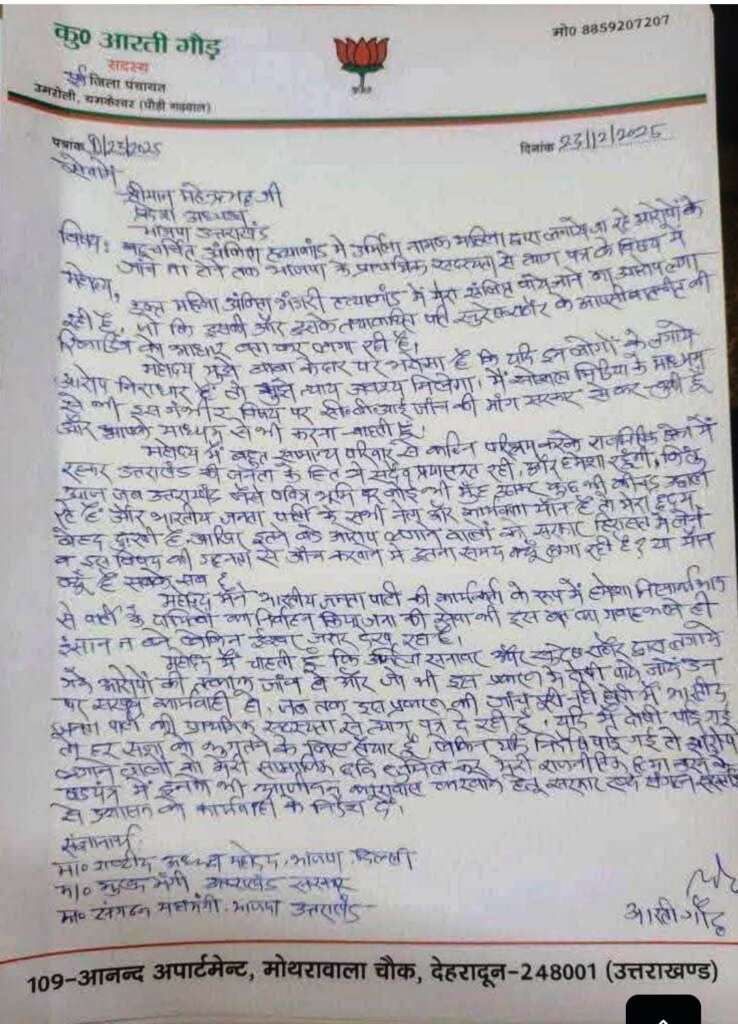 कु० आरती गौड़
मो० 8859207207
सदस्य
जिला पंचायत
उमरोली, यमकेश्वर (पौड़ी गढ़वाल)
पत्रांक
दिनांक 23/12/2025
सेवा में
श्रीमान महेन्द्र भट्ट जी
प्रदेश अध्यक्ष
भाजपा उत्तराखंड
विषय: बहुचर्चित अंकिता हत्याकांड में उर्मिला नामक महिला द्वारा लगाये जा रहे आरोपों के
जाँच ना होने तक भाजपा के प्राथमिक सदस्यता से त्याग पत्र के विषय में
महोदय,
उक्त महिला अंकिता भंडारी हत्याकांड में मेरा संलिप्त पाये जाने का आरोप लगा
रही है, जो कि इसकी और इसके तथाकथित पति सुरेश राठौर के आपसी बातचीत की
रिकार्डिंग को आधार बना कर लगा रही है।
महोदय मुझे बाबा केदार पर भरोसा है कि यदि इन लोगों के लगाये
आरोप निराधार हैं तो मुझे न्याय अवश्य मिलेगा। मैं सोशल मिडिया के माध्यम
से भी इस गंभीर विषय पर सी०बी०आई जाँच की मांग सरकार से कर चुकी हूँ
और आपके माध्यम से भी करना चाहती हूँ।
महोदय मैं बहुत सामान्य परिवार से कठिन परिश्रम करके राजनितिक क्षेत्र में
रहकर उत्तराखंड की जनता के हित में सदैव प्रयासरत रही, और हमेशा रहूंगी, किंतु
आज जब उत्तराखंड जैसे पवित्र भूमि पर कोई भी मुँह उठाकर कुछ भी कीचड़ उछाल
रहे हैं और भारतीय जनता पार्टी के सभी नेता और कार्यकर्ता मौन हैं तो मेरा हृदय
बेहद दुखी है, आखिर इतने बड़े आरोप लगाने वालों को सरकार हिरासत में लेने
व इस विषय की गहनता से जाँच करवाने में इतना समय क्यूँ लगा रही है? या मौन
क्यूँ है सबके सब।
महोदय मैंने भारतीय जनता पार्टी की कार्यकर्ता के रूप में हमेशा निस्वार्थ भाव
से पार्टी के दायित्वों का निर्वहन किया जनता की सेवा की इस बात का गवाह भले ही
इंसान न बने लेकिन ईश्वर जरूर देख रहा है।
महोदय मैं चाहती हूँ कि उर्मिला सनावर और सुरेश राठौर द्वारा लगाये
गये आरोपों की तत्काल जाँच हो और जो भी इस प्रकरण में दोषी पाये जायें उन
पर सख्त कार्यवाही हो, जब तक इस प्रकरण की जाँच पूरी नहीं होती मैं भारतीय
जनता पार्टी की प्राथमिक सदस्यता से त्याग पत्र दे रही हूँ, यदि मैं दोषी पाई गई
तो हर सजा को भुगतने के लिए तैयार हूँ, लेकिन यदि निर्दोष पाई गई तो आरोप
लगाने वालों को मेरी सामाजिक छवि धूमिल कर मेरी राजनीतिक हत्या करने के
षडयंत्र में इनको भी आजीवन कारावास करवाने हेतु सरकार एवं संगठन
से प्रशासन को कार्यवाही के निर्देश दें।
मा० राष्ट्रीय अध्यक्ष महोदय, भाजपा दिल्ली
मा० मुख्य मंत्री उत्तराखंड सरकार
मा० संगठन महामंत्री, भाजपा उत्तराखंड
आरती गौड़
109-आनन्द अपार्टमेन्ट, मोथरावाला चौक, देहरादून-248001 (उत्तराखण्ड)